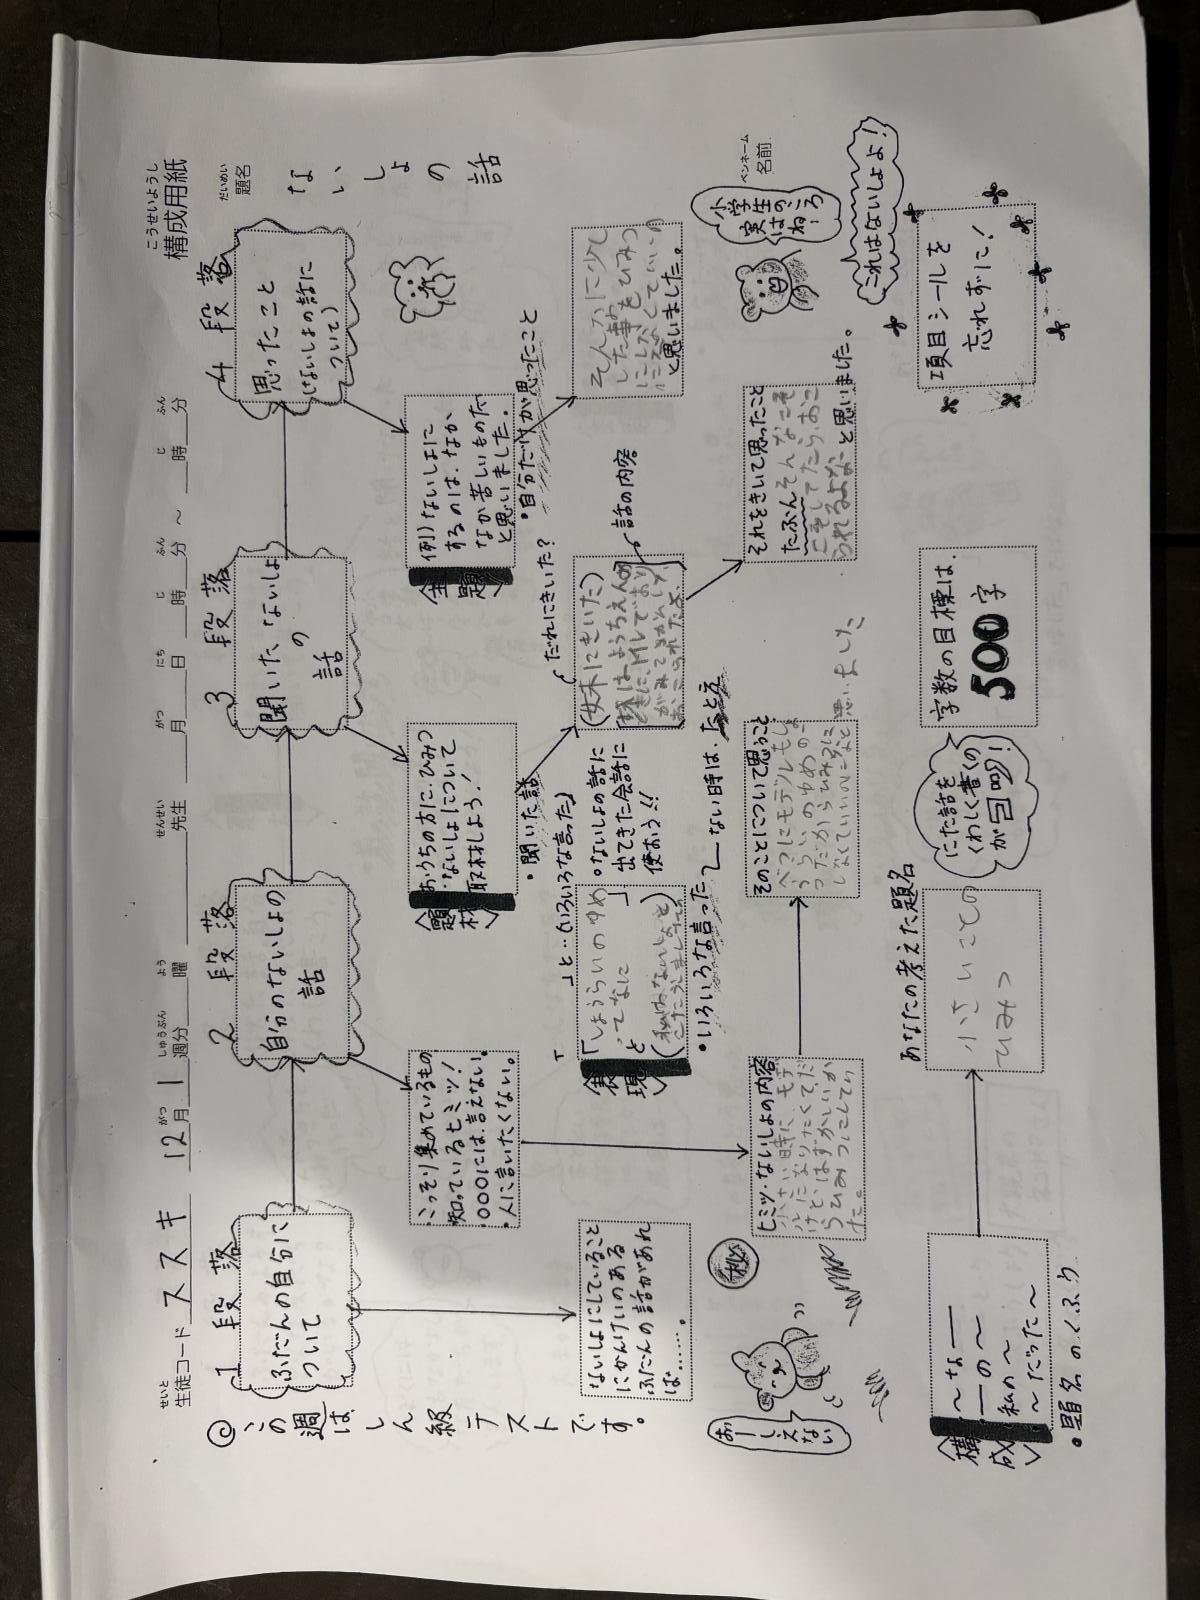 こうせいようし
構成用紙
せいと
生徒コード ススキ
がつ
12月
しゅうぶん
1週分
よう
曜
せんせい
先生
がつ
月
にち
日
じ
時
ふん
分
～
じ
時
ふん
分
だいめい
題名
ないしょの話
ペンネーム
名前
◎この週はしん級テストです。
1段落
ふだんの自分に
ついて
2段落
自分のないしょの
話
3段落
聞いた、ないしょ
の
話
4段落
思ったこと
(ないしょの話に
ついて)
・こっそり集めているもの
・知っているヒミツ!
・○○○には、言えない。
・人に言いたくない。
題材
・おうちの方に、ひみつ
・ないしょについて
取材しよう!
・聞いた話
主題
例)ないしょに
するのは、なか
なか苦しいものだ
と思いました。
・自分だけが思ったこと
ないしょにしていること
にかんけいのある
ふだんの話があれ
ば……。
「 」と…(いろいろな言った)
・ないしょの話に
出てきた会話に
使おう!!
表現
「しょうらいのゆめ
ってなに 」
と
・いろいろな言った
ない時は、たとえ
だれにきいた?
(妹にきいた)
話の内容
そんなに少し
した事をひみつ
にしなくていいの
と思いました。
おーしえない
秘
ヒミツ・ないしょの内容
小さい時に、モデ
ルになりたくて、だ
けど、はずかしいか
らひみつにしてい
た。
そのことについて思うこと
べつにモデルもしょ
うらいのゆめの一
つだからひみつに
しなくていいのになと思いました
それをきいて思ったこと
たぶんそんなこそ
こそしてたら、おこ
られるよなーと思いました。
小学生のころ
実はね…
これはないしょよ!
構成
～な――
――の～
私の～
～だった～
・題名のくふう
あなたの考えた題名
小さいことの
ひみつ
にた話を
くわしく書くの
が◎!
字数の目標は、
500字
項目シールを
忘れずに!